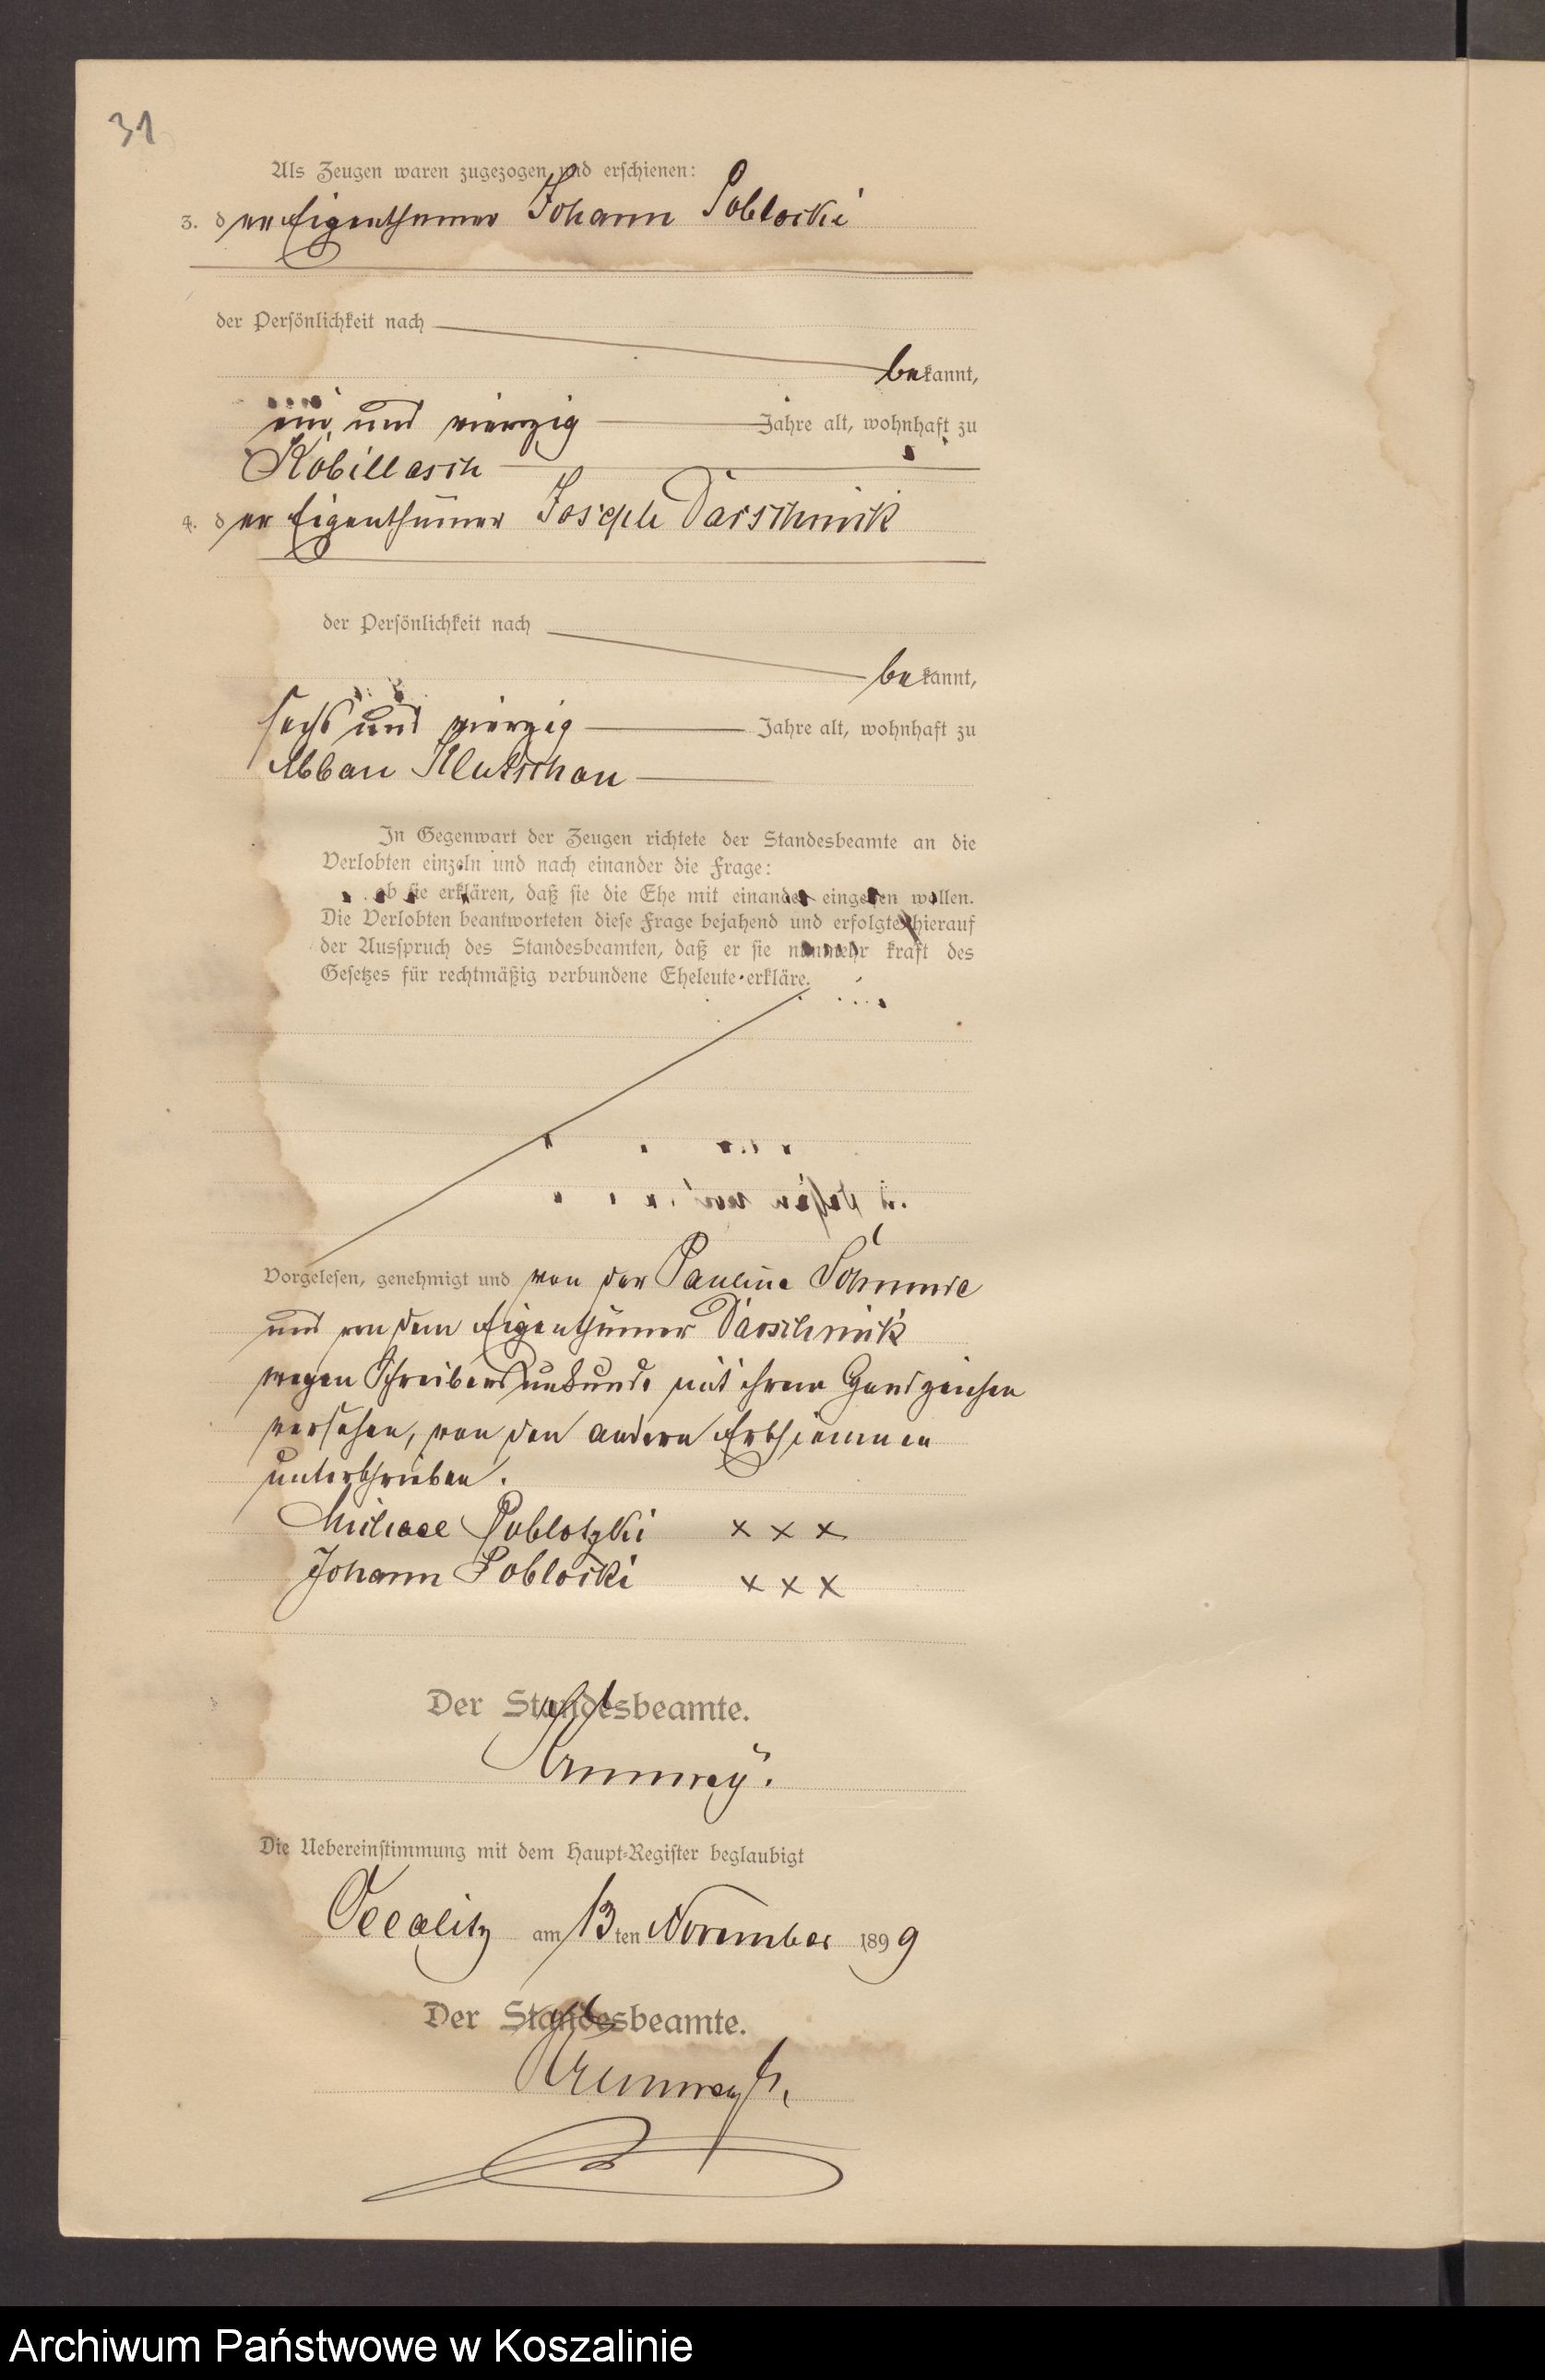 31
Als Zeugen waren zugezogen und erschienen:
3. der Eigenthümer Johann Poblocki
der Persönlichkeit nach
bekannt,
ein und vierzig Jahre alt, wohnhaft zu
Kobillasch
4. der Eigenthümer Joseph Darschnick
der Persönlichkeit nach
bekannt,
sechs und vierzig Jahre alt, wohnhaft zu
Abbau Klutschau
In Gegenwart der Zeugen richtete der Standesbeamte an die
Verlobten einzeln und nach einander die Frage:
ob sie erklären, daß sie die Ehe mit einander eingehen wollen.
Die Verlobten beantworteten diese Frage bejahend und erfolgte hierauf
der Ausspruch des Standesbeamten, daß er sie nunmehr kraft des
Gesetzes für rechtmäßig verbundene Eheleute erkläre.
Vorgelesen, genehmigt und von der Pauline
und von dem Eigenthümer Darschnick
wegen Schreibensunkunde mit ihrem Handzeichen
versehen, von den andern Erschienenen
unterschrieben.
Michael Poblotzki x x x
Johann Poblocki x x x
Der Standesbeamte.
Die Uebereinstimmung mit dem Haupt-Register beglaubigt
Occalitz am 13ten November 1899
Der Standesbeamte.
Archiwum Państwowe w Koszalinie